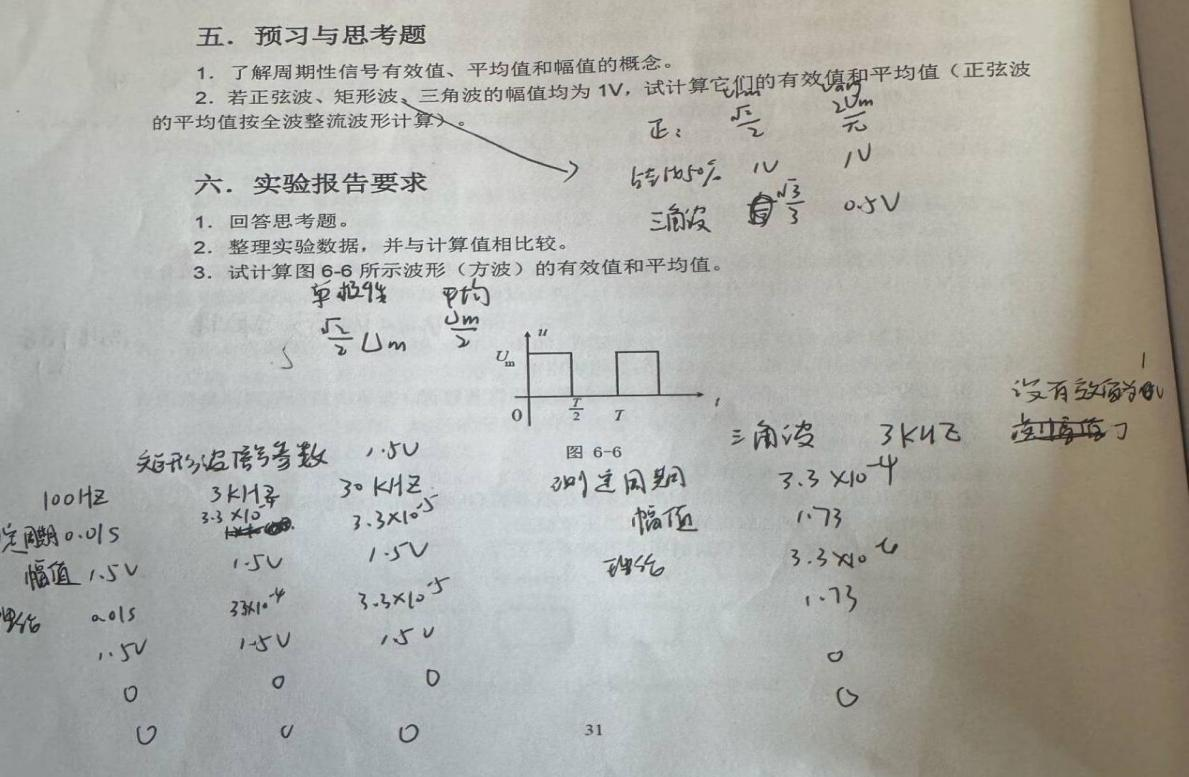 五．预习与思考题
1．了解周期性信号有效值、平均值和幅值的概念。
2．若正弦波、矩形波、三角波的幅值均为 1V，试计算它们的有效值和平均值（正弦波
的平均值按全波整流波形计算）。
正： √2/2 2Um/π
占空比50% 1V 1V
三角波 √3/3 0.5V
六．实验报告要求
1．回答思考题。
2．整理实验数据，并与计算值相比较。
3．试计算图 6-6 所示波形（方波）的有效值和平均值。
单极性 平均
√2/2 Um Um/2
u
Um
0 T/2 T t
图 6-6
矩形波信号参数 1.5V
100HZ 3KHZ 30KHZ
周期 0.01S 3.3×10 3.3×10-5
幅值 1.5V 1.5V 1.5V
理论 0.01S 3.3×10-4 3.3×10-5
1.5V 1.5V 1.5V
0 0 0
0 0 0
三角波 3KHZ
测定周期 3.3×10-4
幅值 1.73
理论 3.3×10-6
1.73
0
0
没有效值为1
31